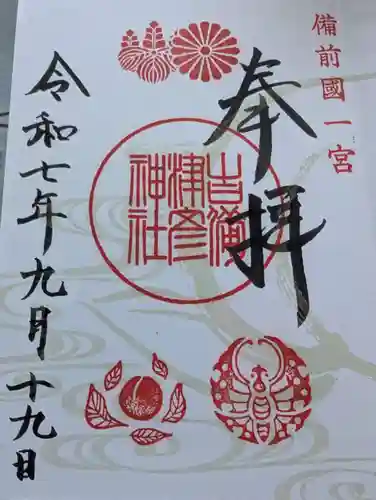 備前國一宮
奉拝
吉備津彦神社
令和七年九月十九日